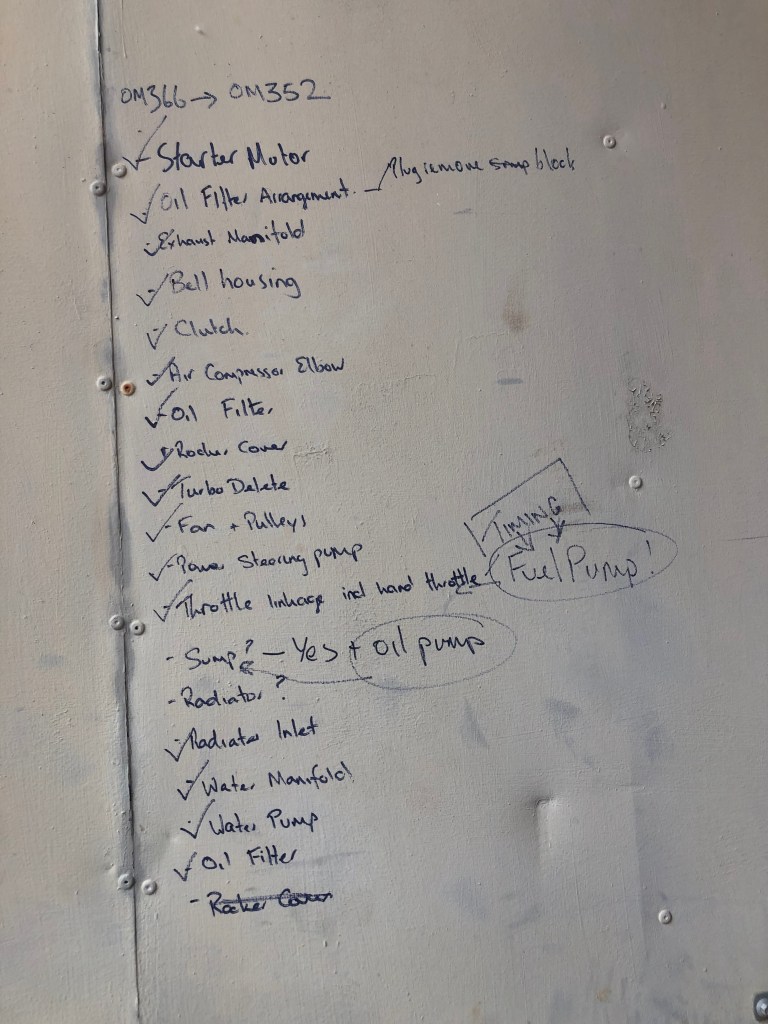 OM366 → OM352
✓- Starter Motor
✓- Oil Filter Arrangement. - Plug remove sump block
✓- Exhaust Manifold
✓- Bell housing
✓- Clutch.
✓- Air Compressor Elbow
✓- Oil Filter
✓- Rocker Cover
✓- Turbo Delete
✓- Fan + Pulleys
TIMING
✓- Power Steering pump
✓- Throttle linkage incl hand throttle - Fuel Pump!
- Sump? - Yes + Oil pump
- Radiator?
✓- Radiator Inlet
✓- Water Manifold
✓- Water Pump
✓- Oil Filter
- Rocker Cover